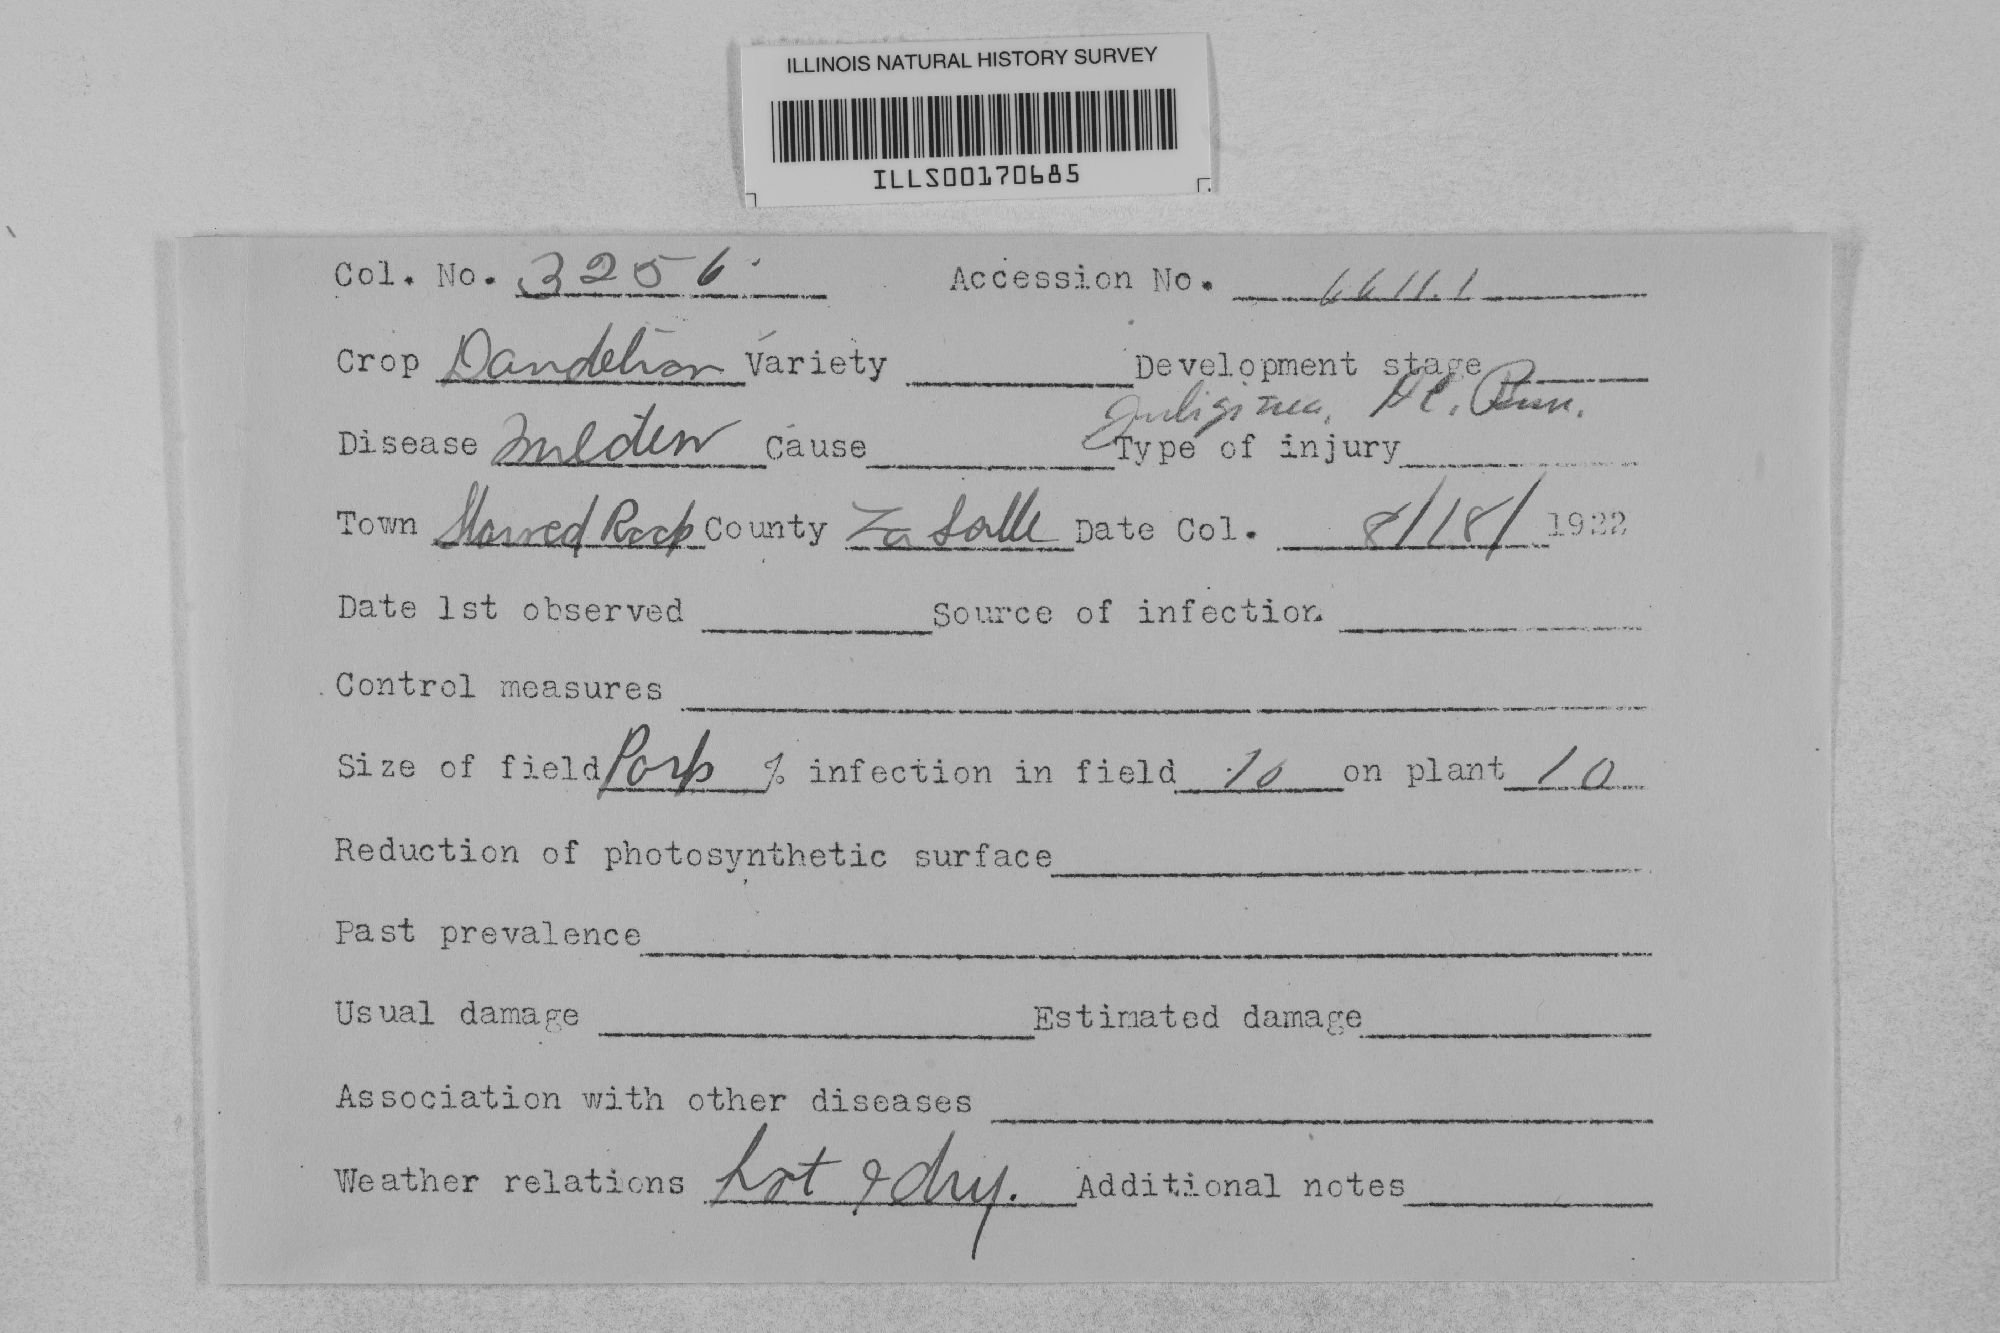 ILLINOIS NATURAL HISTORY SURVEY
ILLS00170685
Col. No. 3256 Accession No. 66111
Crop Dandelion Variety Development stage
fuliginea
Disease mildew Cause Type of injury
Town Starved Rock County La Salle Date Col. 8/18/ 1922
Date 1st observed Source of infection
Control measures
Size of field Park % infection in field 10 on plant 10
Reduction of photosynthetic surface
Past prevalence
Usual damage Estimated damage
Association with other diseases
Weather relations hot & dry. Additional notes